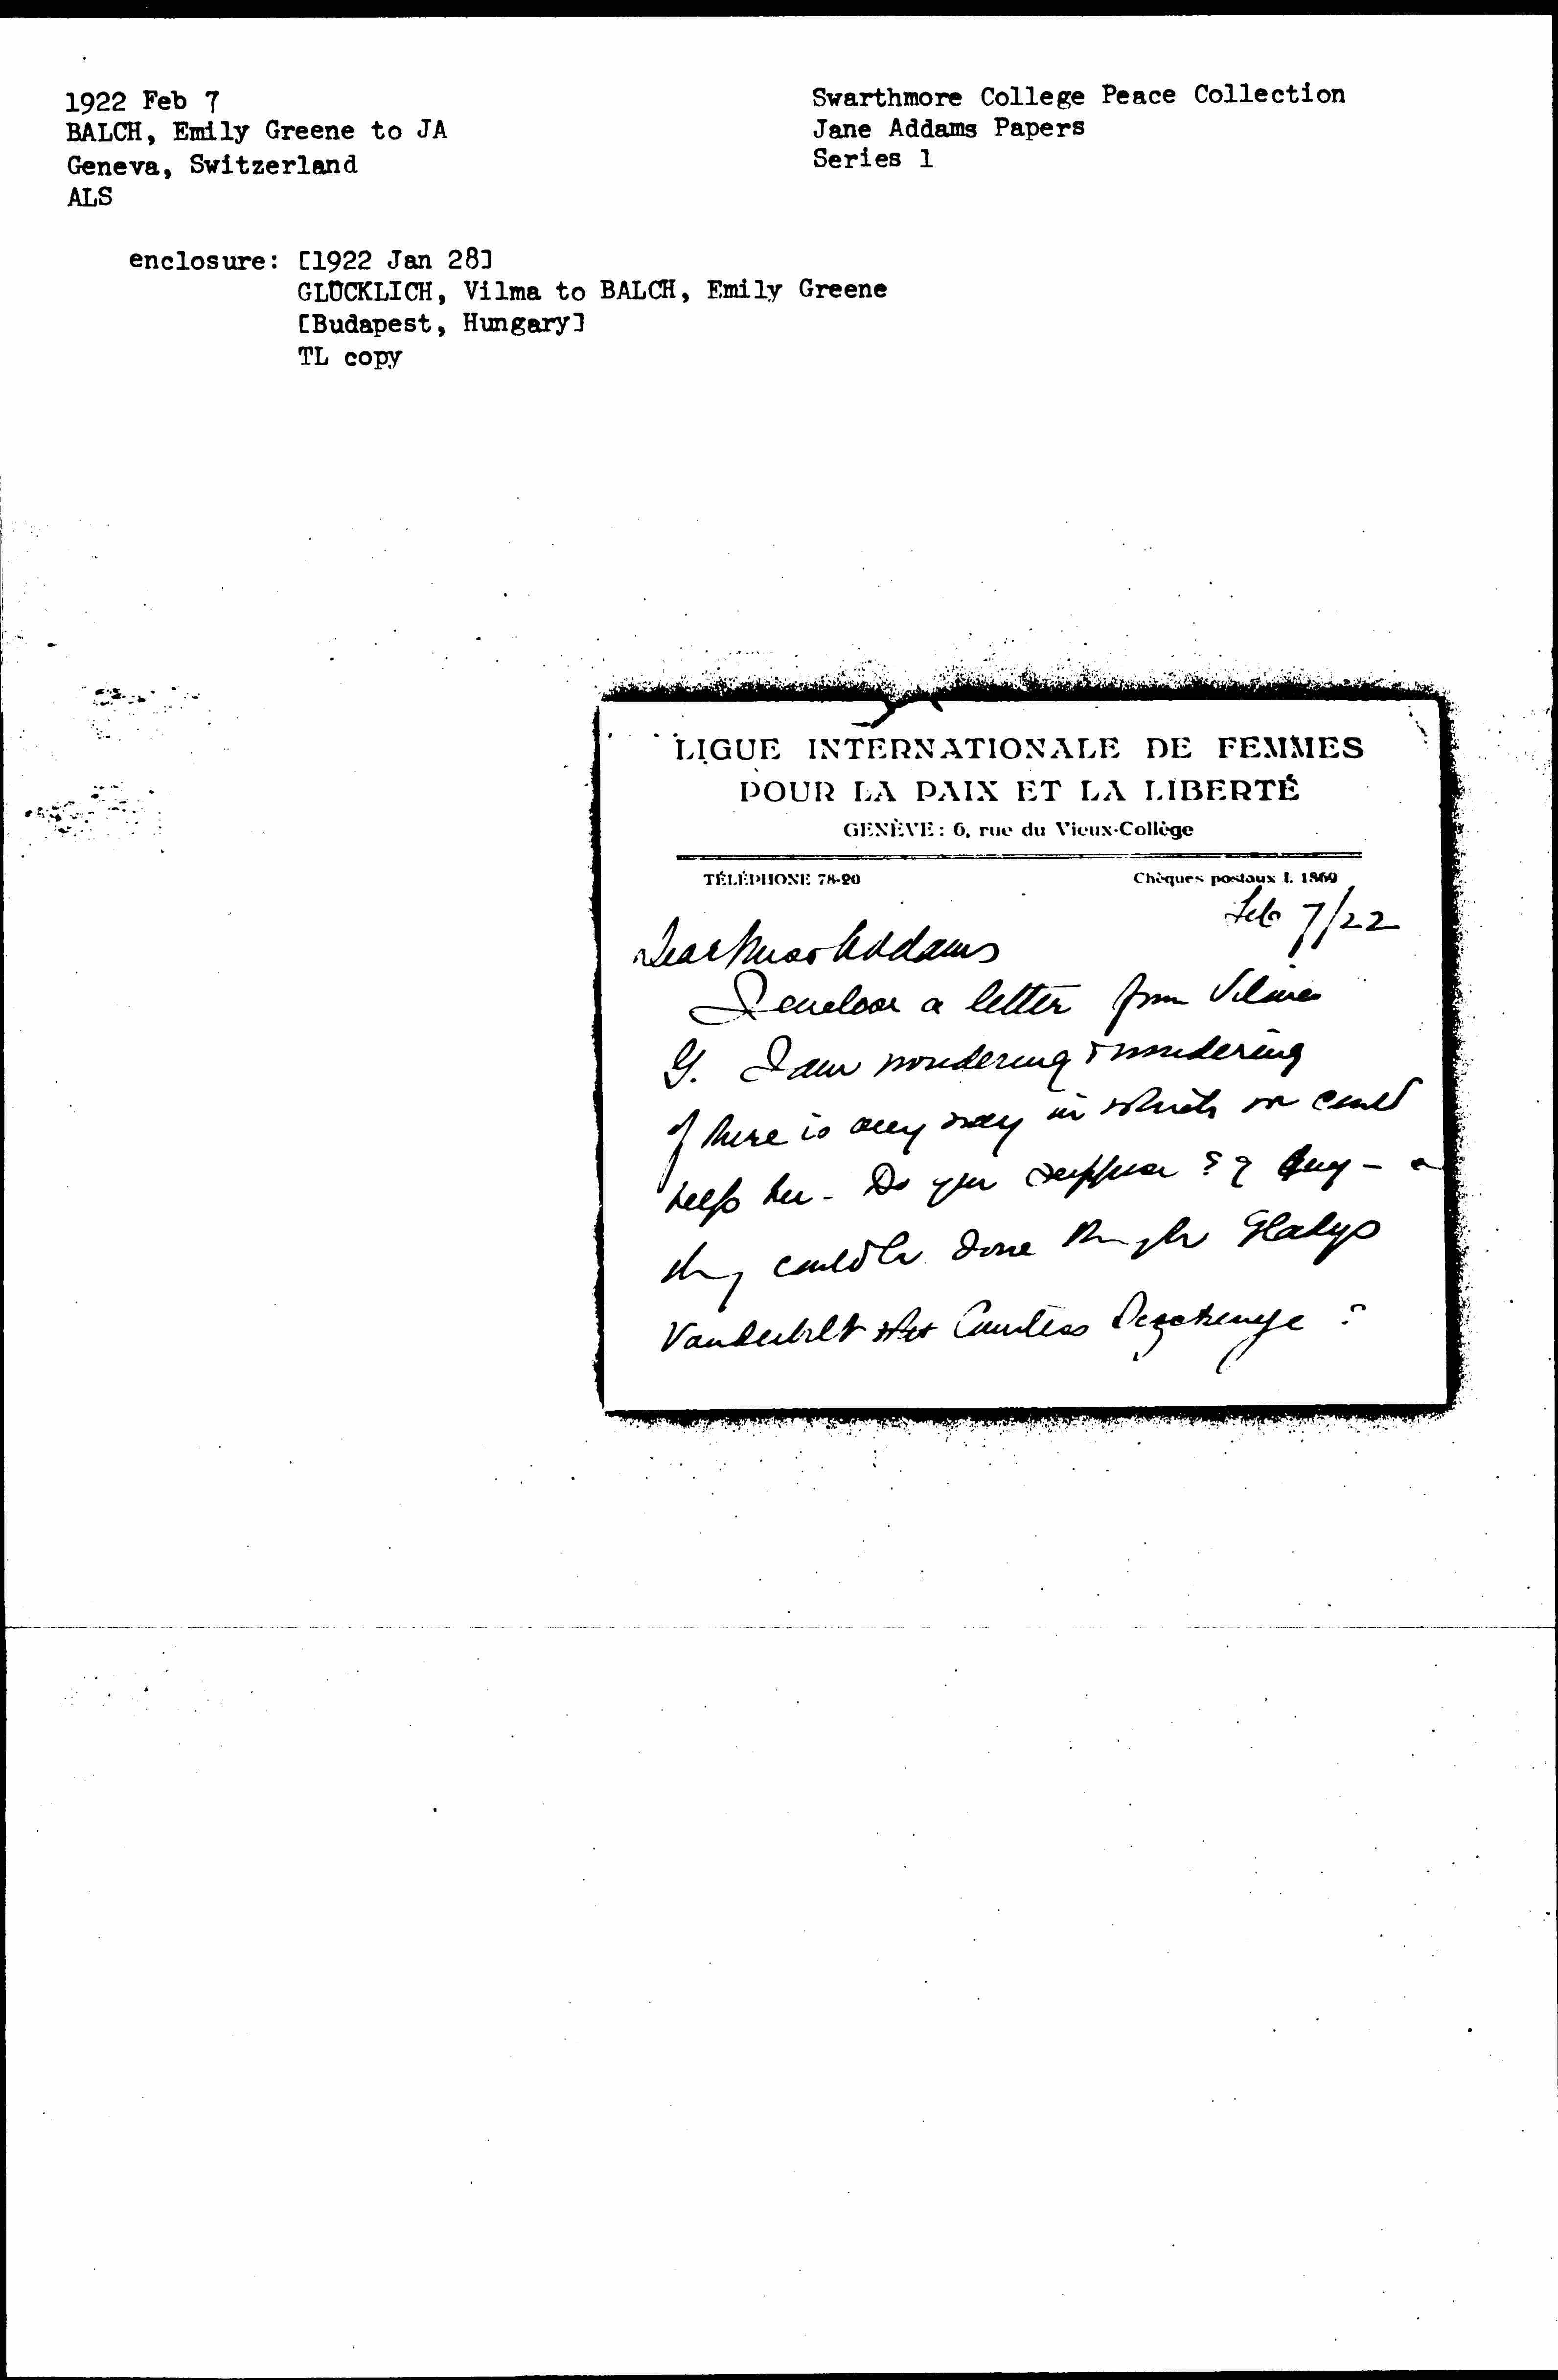 1922 Feb 7
BALCH, Emily Greene to JA
Geneva, Switzerland
ALS
Swarthmore College Peace Collection
Jane Addams Papers
Series 1
enclosure: [1922 Jan 28]
GLÜCKLICH, Vilma to BALCH, Emily Greene
[Budapest, Hungary]
TL copy
LIGUE INTERNATIONALE DE FEMMES
POUR LA PAIX ET LA LIBERTÉ
GENÈVE: 6, rue du Vieux-Collège
TÉLÉPHONE 78-20
Chèques postaux I. 1869
Feb 7/22
Dear Miss Addams
I enclose a letter from Vilma
G. I am wondering & wondering
if there is any way in which we could
help her - Do you suppose any-
thing could be done through Gladys
Vanderbilt Countess